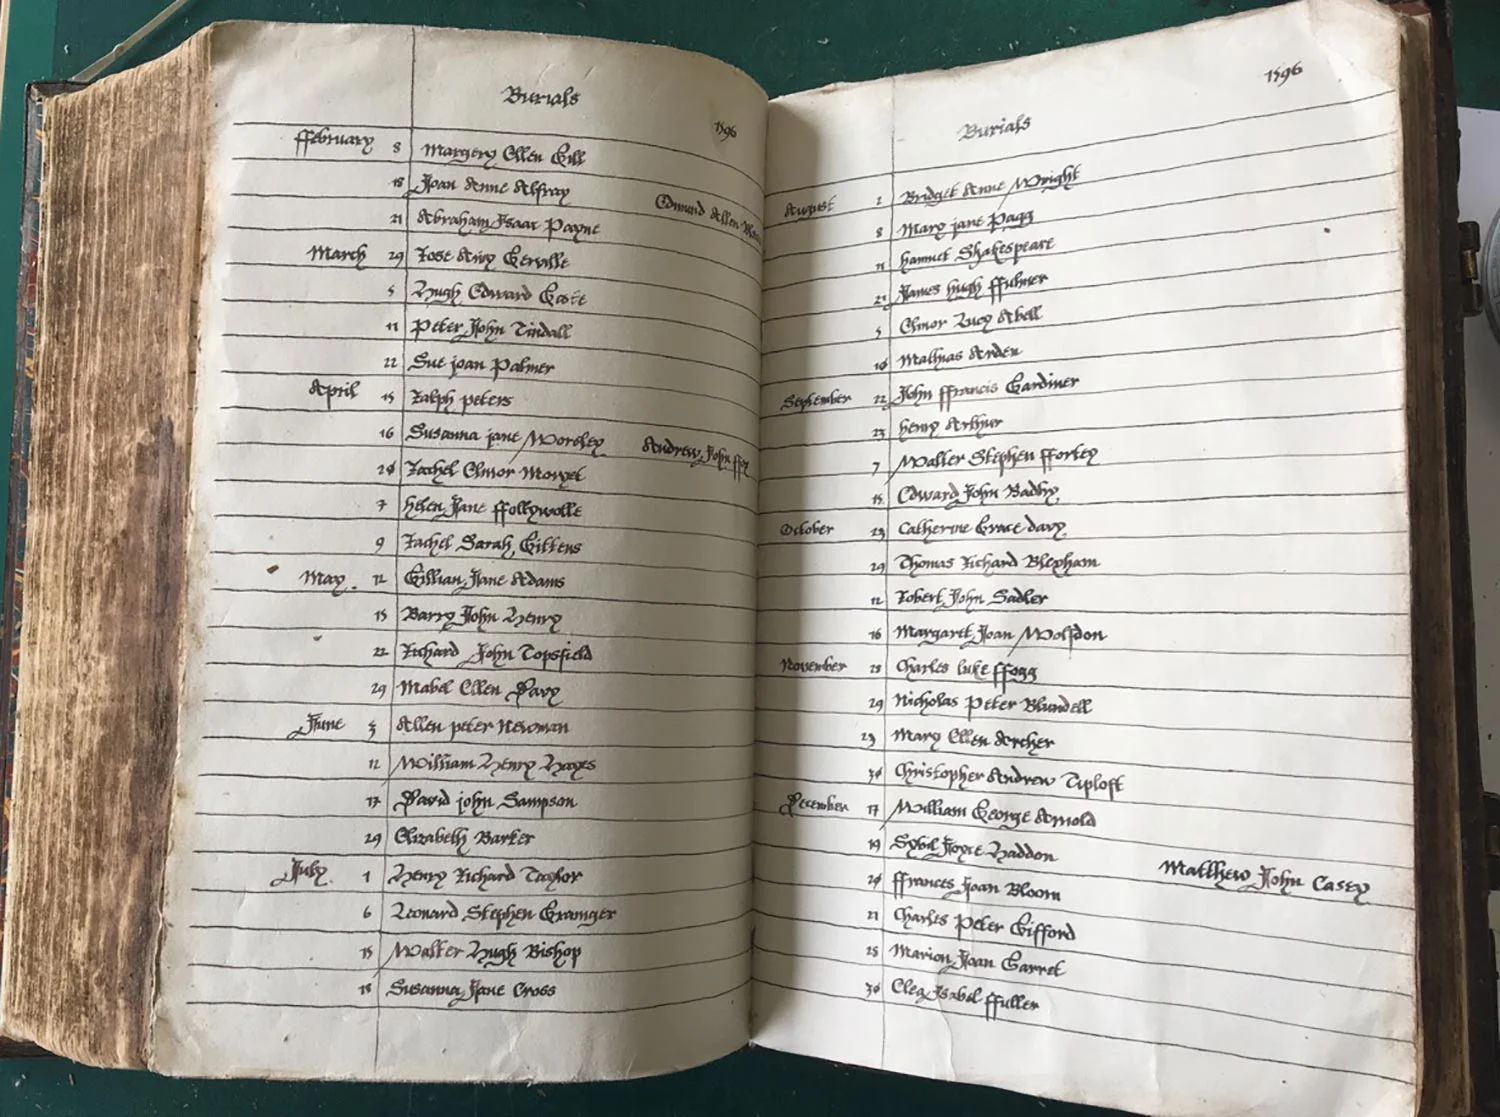 Burials
1596
ffebruary 8 Margery Ellen Gill
18 Joan Anne Alfray
Edmund Allen
21 Abraham Isaac Payne
March 29 Rose Amy Gerville
5 Hugh Edward
11 Peter John Tindall
22 Sue joan Palmer
April 15 Ralph peters
16 Susanna jane Worsley Andrew John
Rachel Elinor
7 helen Jane ffollywolle
9 Rachel Sarah Gittens
May 12 Gillian Jane Adams
15 Barry John Henry
22 Richard John Topsfield
29 Mabel Ellen Davy
June 3 Allen peter Newman
12 William Henry Hayes
17 David john Sampson
29 Elizabeth Barker
July 1 Henry Richard Taylor
6 Leonard Stephen Granger
15 Walter Hugh Bishop
18 Susanna Jane Cross
1596
Burials
August 2 Bridget Anne Wright
8 Mary jane Pagg
11 hamnet Shakespeare
21 James hugh ffulmer
5 Elinor Lucy Abell
Mathias Arden
September 22 John ffrancis Gardiner
23 henry Arthur
7 Walter Stephen ffortey
15 Edward John Badby
October 23 Catherine Grace davy
29 Thomas Richard Bloxham
12 Robert John Sadler
16 Margaret Joan Wolfdon
November 28 Charles luke ffogg
29 Nicholas Peter Blundell
23 Mary Ellen Archer
30 Christopher Andrew Tiploft
December 17 William George Arnold
19 Sybil Joyce Haddon
Matthew John Casey
20 ffrances Joan Bloom
21 Charles Peter Gifford
28 Marion Joan Garret
30 Isabel ffuller